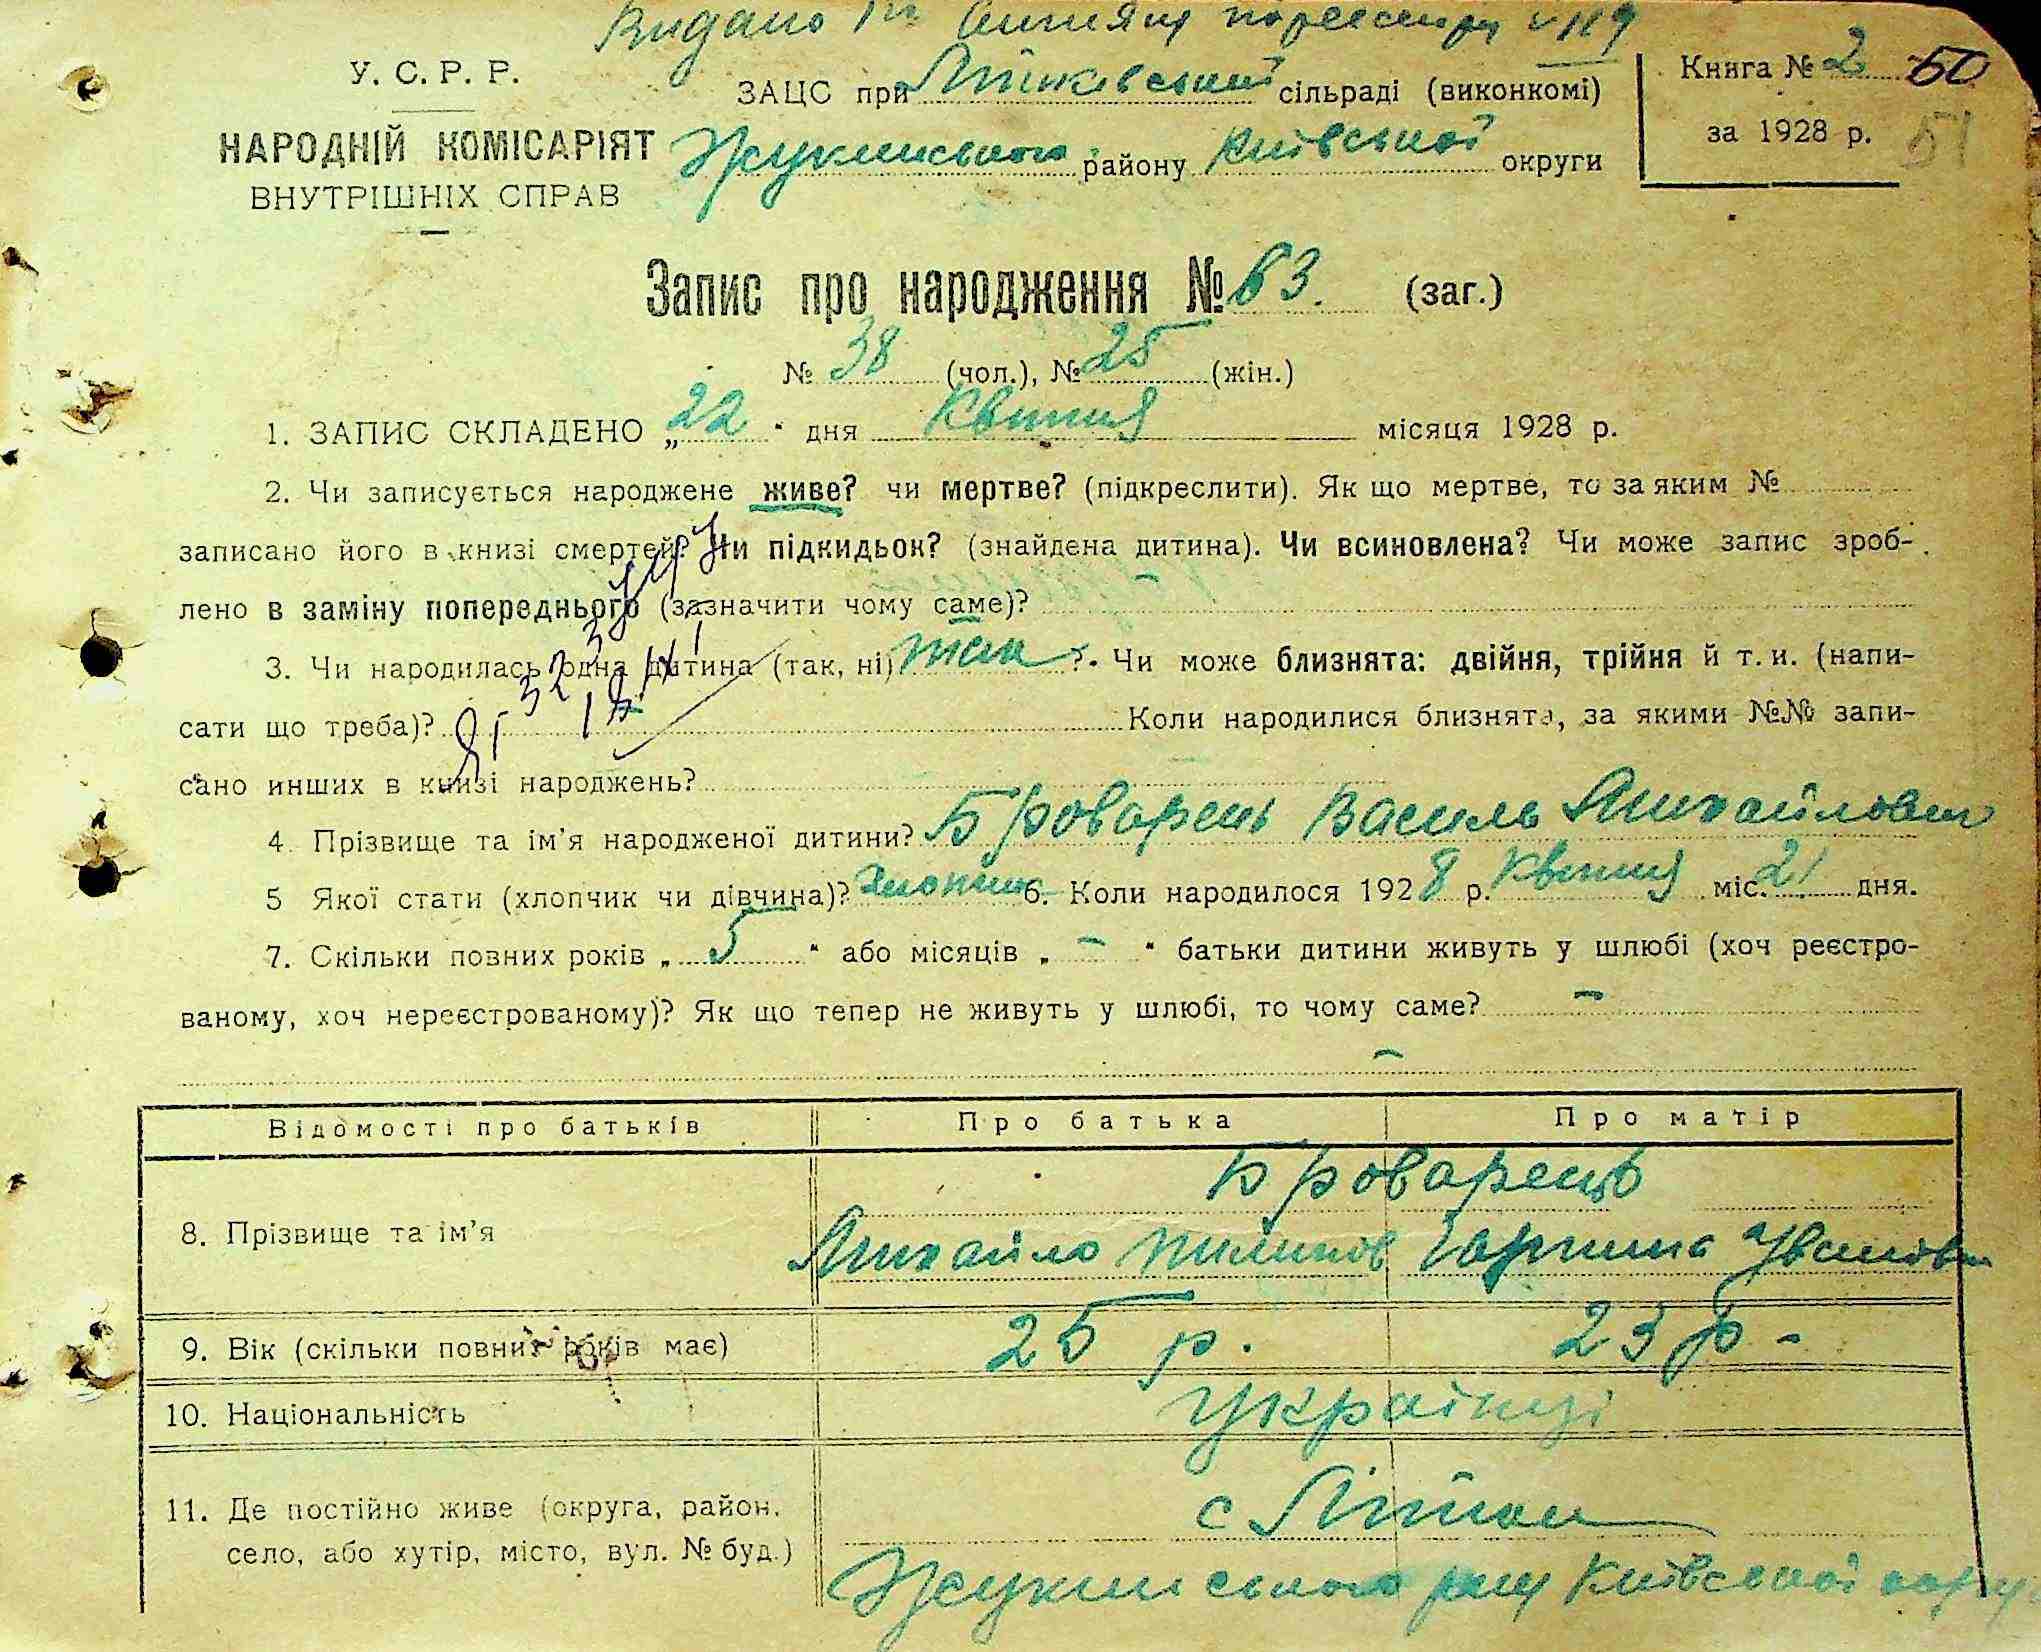 Видано
У. С. Р. Р.
НАРОДНІЙ КОМІСАРІЯТ
ВНУТРІШНІХ СПРАВ
ЗАЦС при Літківській сільраді (виконкомі)
Жукинського району Київської округи
Книга № 2 50
за 1928 р. 51
Запис про народження № 63. (заг.)
№ 38 (чол.), № 25 (жін.)
1. ЗАПИС СКЛАДЕНО „ 22 “ дня Квітня місяця 1928 р.
2. Чи записується народжене живе? чи мертве? (підкреслити). Як що мертве, то за яким №
записано його в книзі смертей? Чи підкидьок? (знайдена дитина). Чи всиновлена? Чи може запис зроб-
лено в заміну попереднього (зазначити чому саме)? –
3. Чи народилась одна дитина (так, ні) так ?. Чи може близнята: двійня, трійня й т. и. (напи-
сати що треба)? Коли народилися близнята, за якими №№ запи-
сано инших в книзі народжень?
4. Прізвище та ім’я народженої дитини? Броварець Василь Михайлович
5 Якої стати (хлопчик чи дівчина)? Хлопчик 6. Коли народилося 1928 р. Квітня міс. 21 дня.
7. Скільки повних років „ 5 “ або місяців „ – “ батьки дитини живуть у шлюбі (хоч реєстро-
ваному, хоч нереєстрованому)? Як що тепер не живуть у шлюбі, то чому саме? –
–
Відомості про батьків Про батька Про матір
Броварець
8. Прізвище та ім’я Михайло Пилипов Горпина Івановна
9. Вік (скільки повних років має) 25 р. 23 р –
10. Національність Українці
11. Де постійно живе (округа, район, с Літки
село, або хутір, місто, вул. № буд.) Жукинського р-ну Київської округи